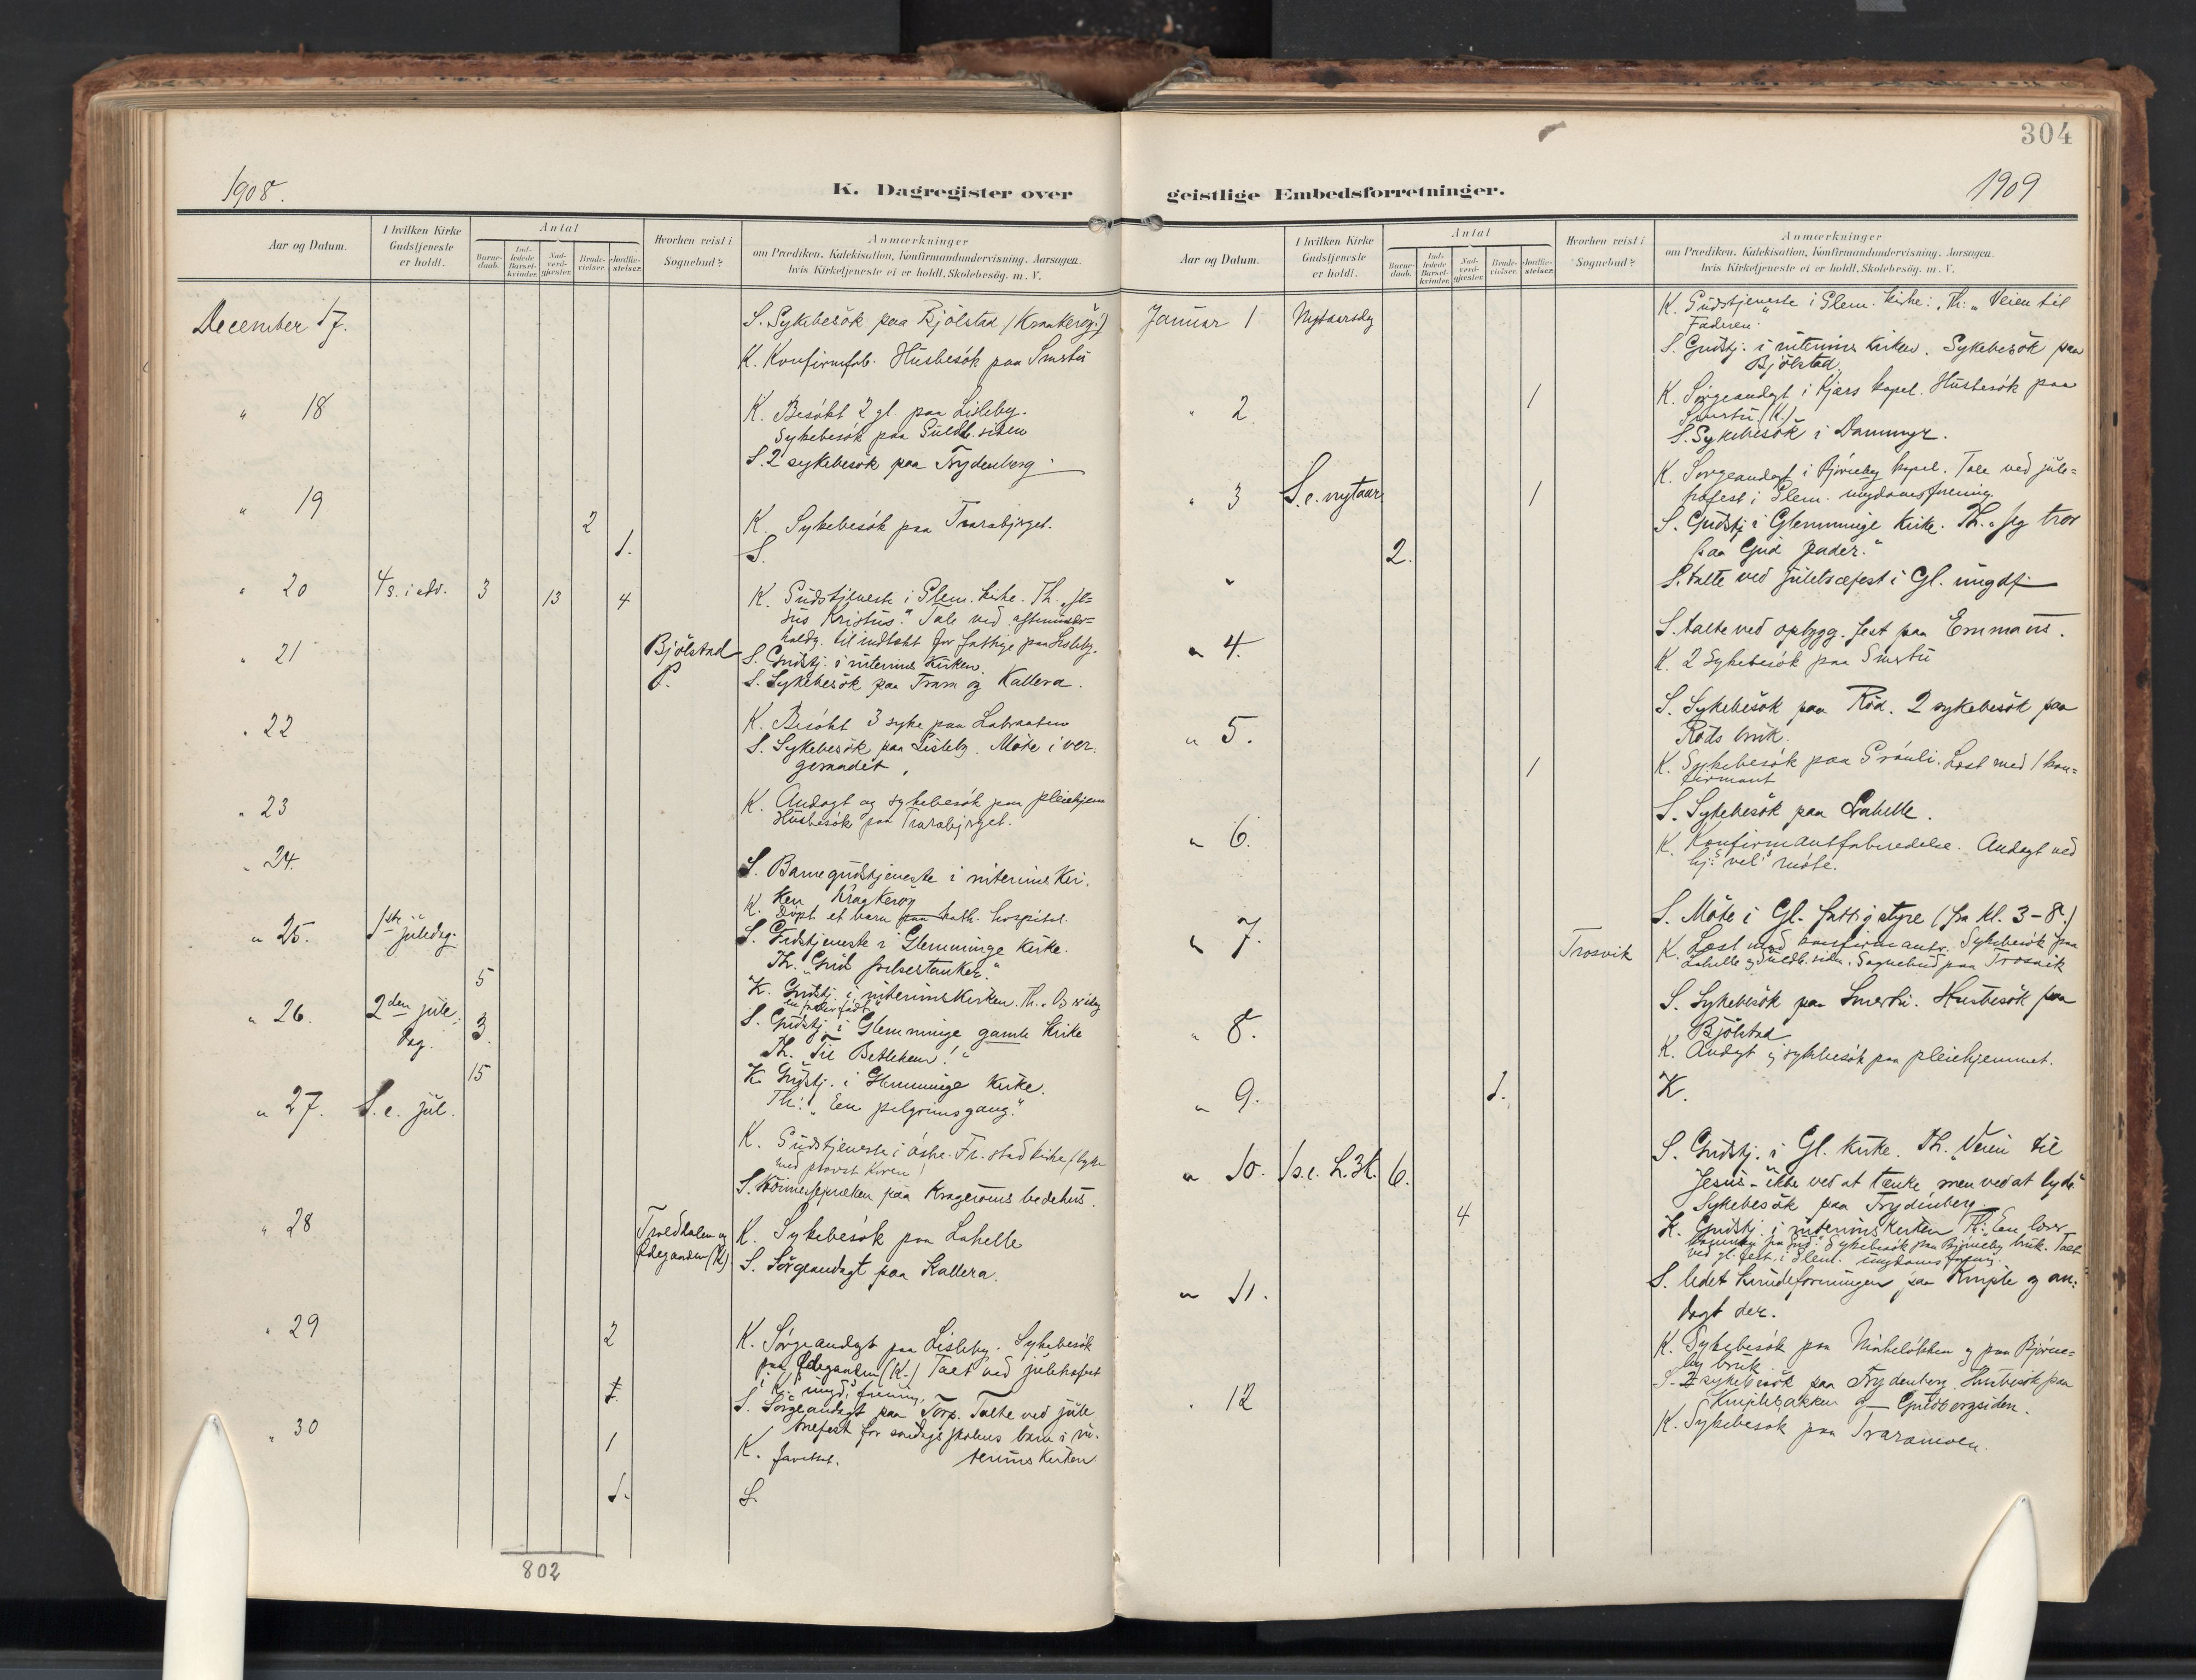 304
1908.
K. Dagregister over
Aar og Datum.
I hvilken Kirke
Gudstjeneste
er holdt.
Antal
Barne-
daab.
Ind-
ledede
Barsel-
kvinder.
Nad-
verd-
gjester.
Brude-
vielser.
Jordfæ-
stelser.
Hvorhen reist i
Sognebud?
Anmærkninger
om Prædiken, Katekisation, Konfirmandundervisning. Aarsagen,
hvis Kirketjeneste ei er holdt. Skolebesøg. m. V.
December 17.
S. Sykebesök paa Bjölstad (Krakerøy.)
K. Konfirmfob. Husbesök paa Smertu
" 18
K. Besökt 2 gl. paa Lisleby.
Sykebesök paa Guldb. siden
S. 2 sykebesök paa Trydenborg
" 19
2
K. Sykebesök paa Trarabjrget.
1.
S.
" 20
4 s. i adv.
3
13
4
K. Gudstjeneste i Glem. kirke. Th. "Je-
sus Kristus." Tale ved aftenunder-
holdg. til indtækt for fattige paa Lisleby.
" 21
Bjölstad
S. Gudstj. i interims kirken.
P.
S. Sykebesök paa Trara og Kallera.
" 22
K. Besökt 3 syke paa Labraaten
S. Sykebesök paa Lisleby. Möte i ver-
geraadet.
" 23
K. Andagt og sykebesök paa pleiehjem
Husbesök paa Trarabjrget.
" 24.
S. Barnegudstjeneste i interims kir.
ken Kragkerøy
K. Döpt et barn paa kath. hospital.
" 25.
1ste juledag.
S. Gudstjeneste i Glemminge kirke.
Th. "Gud frelsertanker."
5
K. Gudstj. i interimskirken. Th. "Os er idag
en frelser födt."
" 26.
2den jule-
dag.
3.
S. Gudstj. i Glemminge gamle kirke
Th. "Til Betlehem!"
15
K. Gudstj. i Glemminge kirke.
Th: "Een pilgrimsgang."
" 27.
S. e. jul.
K. Gudstjeneste i östre Fr. stad kirke, bytte
med provst Koren!
S. paa Kragerøens bedehus.
" 28
Troldalen og
Ødegaarden (K)
K. Sykebesök paa Lahelle
S. Sörgeandagt paa Kallera.
" 29
2
K. Sörgeandagt paa Lisleby. Sykebesök
paa Ødegaarden (K.) Talt ved juletrefest
i K. ungd. forening.
1.
S. Sörgeandagt paa Torp. Talte ved jule
trefest for söndagsskolens barn i in-
terims kirken
" 30
1
K. Javettet.
1.
S.
802
1909
geistlige Embedsforretninger.
Aar og Datum.
I hvilken Kirke
Gudstjeneste
er holdt.
Antal
Barne-
daab.
Ind-
ledede
Barsel-
kvinder.
Nad-
verd-
gjester.
Brude-
vielser.
Jordfæ-
stelser.
Hvorhen reist i
Sognebud?
Anmærkninger
om Prædiken, Katekisation, Konfirmandundervisning. Aarsagen,
hvis Kirketjeneste ei er holdt. Skolebesøg. m. V.
Januar 1
Nytaarsdag
K. Gudstjeneste i Glem. kirke: Th: "Veien til
Faderen."
S. Gudstj. i interims kirken. Sykebesök paa
Bjölstad.
" 2
1
K. Sörgeandagt i Kjærs kapel. Husbesök paa
Smertu (K.)
S. Sykebesök i Dammyr.
" 3
S. e. nytaar
1
K. Sorgeandagt i Björneby kapel. Tale ved jule-
trefest i Glem. ungdomsforening.
2.
S. Gudstj. i Glemminge kirke. Th. "Jeg tror
paa Gud Fader."
"
S. talte ved juletræfest i Gl. ungdf.
" 4.
S. talte ved opbygg. fest paa Emmaus.
K. 2 Sykebesök paa Smertu
" 5.
S. Sykebesök paa Röd. 2 sykebesök paa
Röds bruk.
1
K. Sykebesök paa Grönli. Læst med 1 kon-
firmant
" 6.
S. Sykebesök paa Lahelle.
K. Konfirmantforberedelse. Andagt ved
hj. "vel" möte.
" 7.
S. Möte i Gl. fattigstyre (fra kl. 3-8.)
Trosvik
K. Læst med konfirmanter. Sykebesök paa
Lahelle og Guldb. siden. Sognebud paa Trosvik
" 8.
S. Sykebesök paa Smertu. Husbesök paa
Bjölstad
K. Andagt og sykebesök paa pleiehjemmet.
" 9.
1.
K.
" 10.
1 s. e. H. 3 K.
6.
S. Gudstj. i Gl. kirke. Th. "Veien til
Jesus - ikke ved at tænke men ved at lyde"
Sykebesök paa Trydenborg
4
K. Gudstj. i interims kirken Th: "Een
paa Gud." Sykebesök paa Björneby bruk. Talt
ved gl. fest i Glem. ungdomsforening.
" 11.
S. ledet kvindeforeningen paa Kniple og an-
dagt der.
K. Sykebesök paa Nabbeløkken og paa Björne-
by bruk.
" 12
S. 2 sykebesök paa Trydenborg. Husbesök paa
Kniplebakken og Guldborgsiden.
K. Sykebesök paa Traramoen.